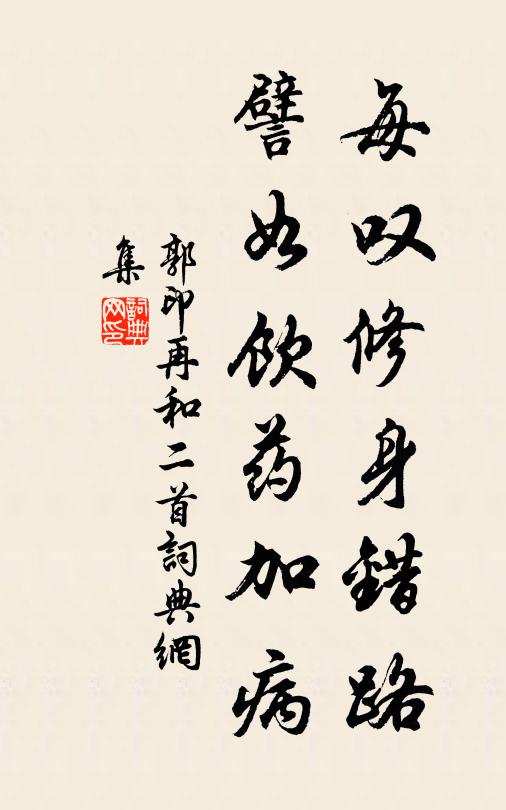 每叹修身錯路
譬如飲药加病
郭印再和二首詞典網
集
詞典網印